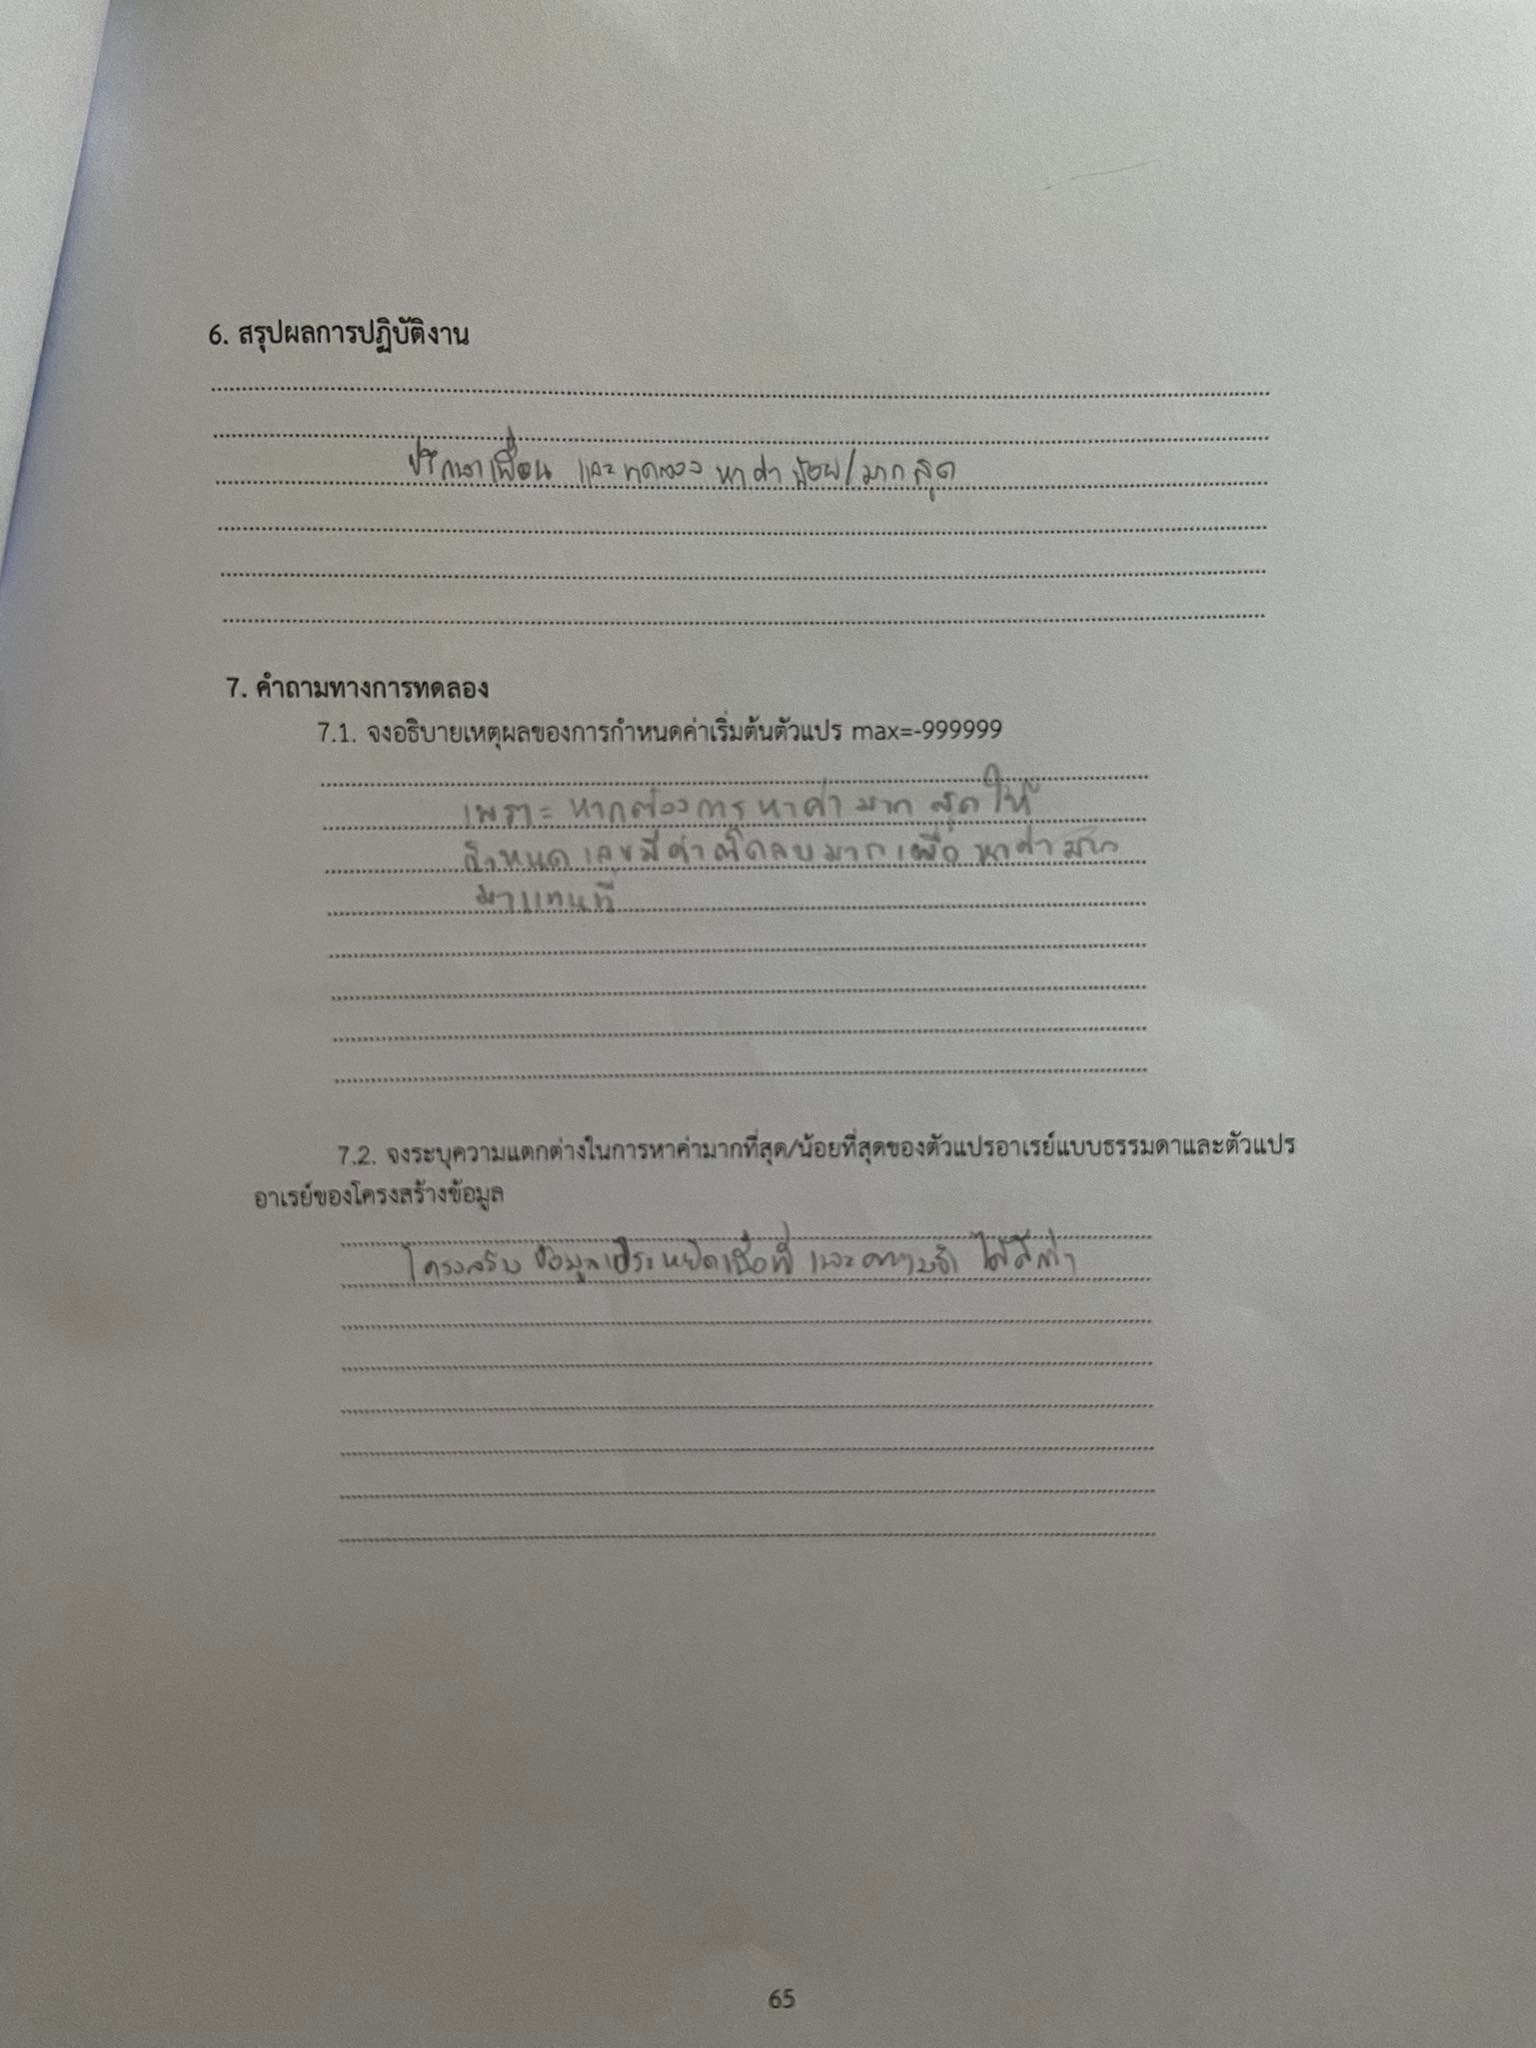 6. สรุปผลการปฏิบัติงาน
ปรึกษาเพื่อน และทดลอง หาค่า น้อย/มาก สุด
7. คำถามทางการทดลอง
7.1. จงอธิบายเหตุผลของการกำหนดค่าเริ่มต้นตัวแปร max=-999999
เพราะ หากต้องการ หาค่า มาก สุด ให้
กำหนด เลขมีค่าติดลบมาก เพื่อ หาค่า มาก
มาแทนที่
7.2. จงระบุความแตกต่างในการหาค่ามากที่สุด/น้อยที่สุดของตัวแปรอาเรย์แบบธรรมดาและตัวแปร
อาเรย์ของโครงสร้างข้อมูล
โครงสร้าง ข้อมูลประหยัดเนื้อที่ และความจำ ได้ดีกว่า
65